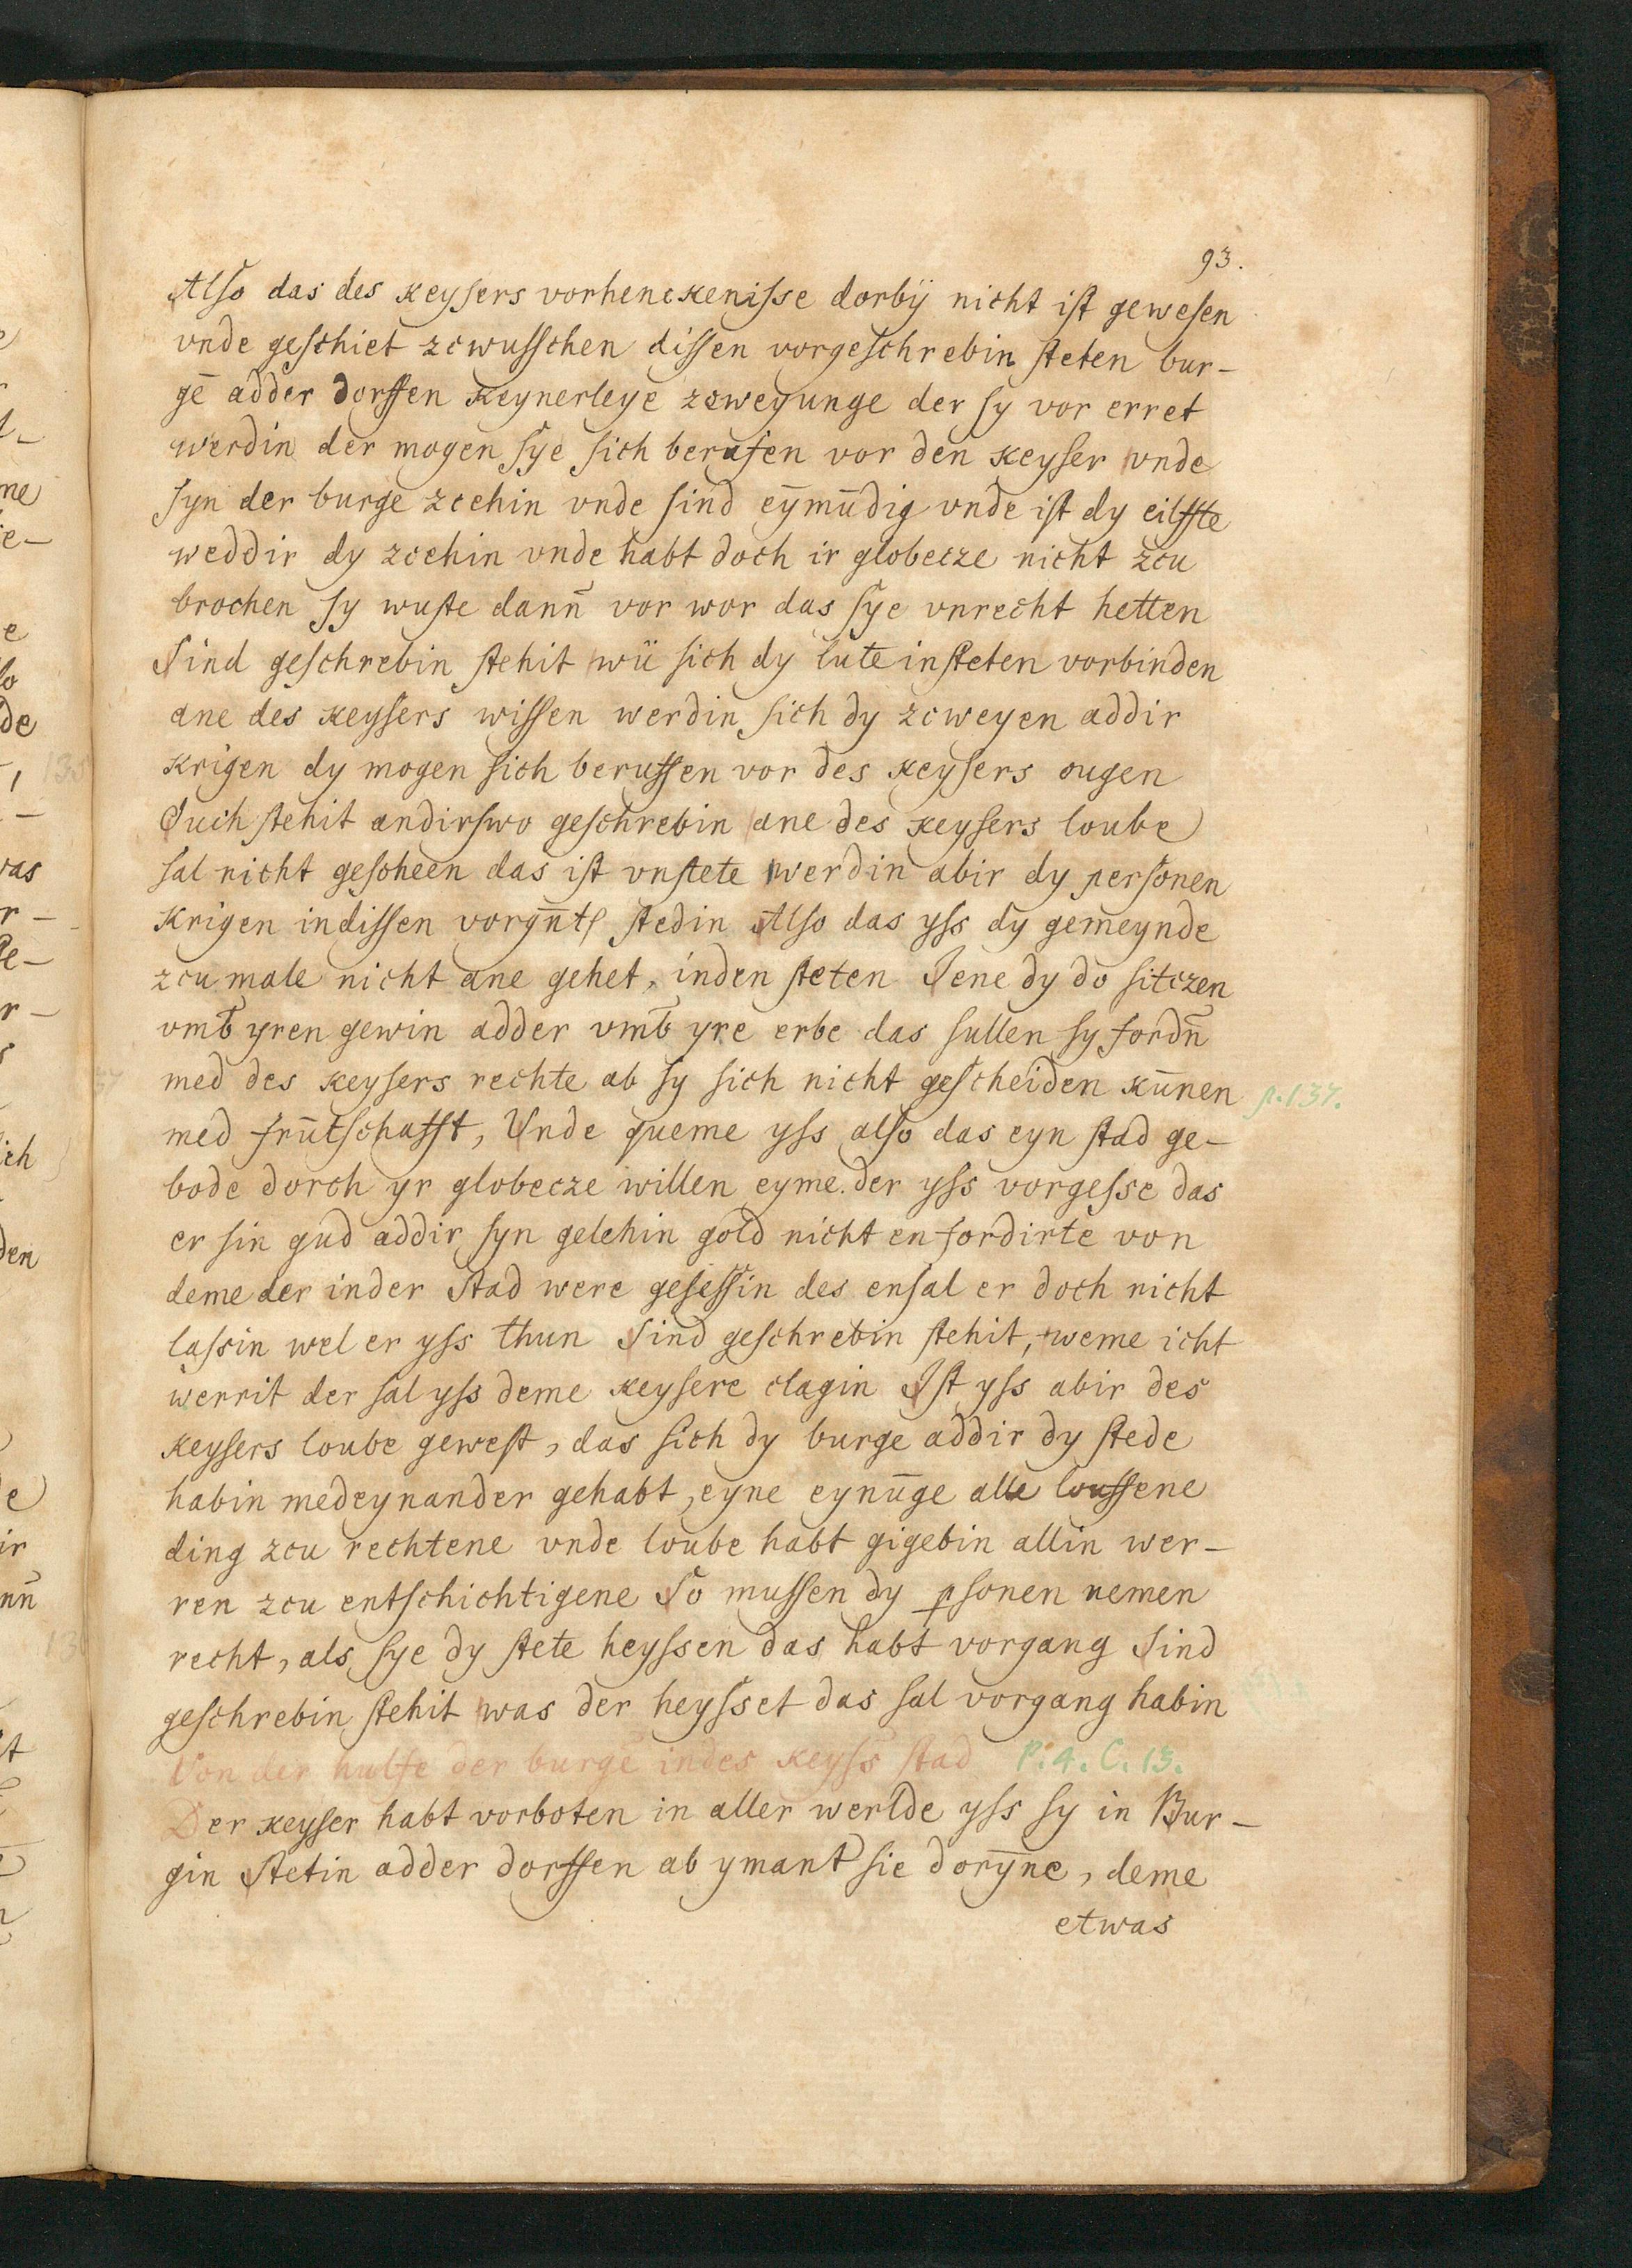 93.
Also das des keysers vorhenckenisse dorbÿ nicht ist gewesen
vnde geschiet zcwusschen dissen vorgeschrebin steten bur-
gē adder dorffen keynerleye zcweyunge der sy vor erret
werdin der mogen sye sich berufen vor den keyser vnde
syn der burge zcehin vnde sind eȳmūdig vnde ist dy eilffte
weddir dy zcehin vnde habt doch ir globecze nicht zcu
brochen sy wuste dann̄ vor wor das sye vnrecht hetten
Sind geschrebin stehit wü sich dy lute in steten vorbinden
ane des keysers wissen werdin sich dy zcweyen addir
krigen dy mogen sich beruffen vor des keysers ougen
Ouch stehit andirswo geschrebin ane des keysers loube
sal nicht gescheen das ist vnstete werdin abir dy personen
krigen in dissen vorgn̄t stedin Also das yss dy gemeynde
zcu male nicht ane gehet, in den steten Jene dy do sitczen
vmb̄ yren gewin adder vmb̄ yre erbe das sullen sy fordn̄
med des keysers rechte ab sy sich nicht gescheiden kūnen
p. 137.
med frūtschafft, Vnde queme yss also das eyn stad ge-
bode dorch yr globecze willen eyme der yss vorgesse das
er sin gud addir syn gelehin gold nicht enfordirte von
deme der in der Stad were gesessin des ensal er doch nicht
lassin wel er yss thun Sind geschrebin stehit, weme icht
werrit der sal yss deme keysere clagin Ist yss abir des
keysers loube gewest, das sich dy burge addir dy stede
habin medeynander gehabt, eyne eynūge alle louffene
ding zcu rechtene vnde loube habt gigebin allin wer-
ren zcu entschichtigene So mussen dy psonen nemen
recht, als sye dy stete heyssen das habt vorgang Sind
geschrebin stehit was der heysset das sal vorgang habin
Von der hulfe der burgē in des keyss̄ stad P. 4. C. 13.
Der keyser habt vorboten in aller werlde yss sy in Bur-
gin Stetin adder dorffen ab ymant sie dorȳne, deme
etwas